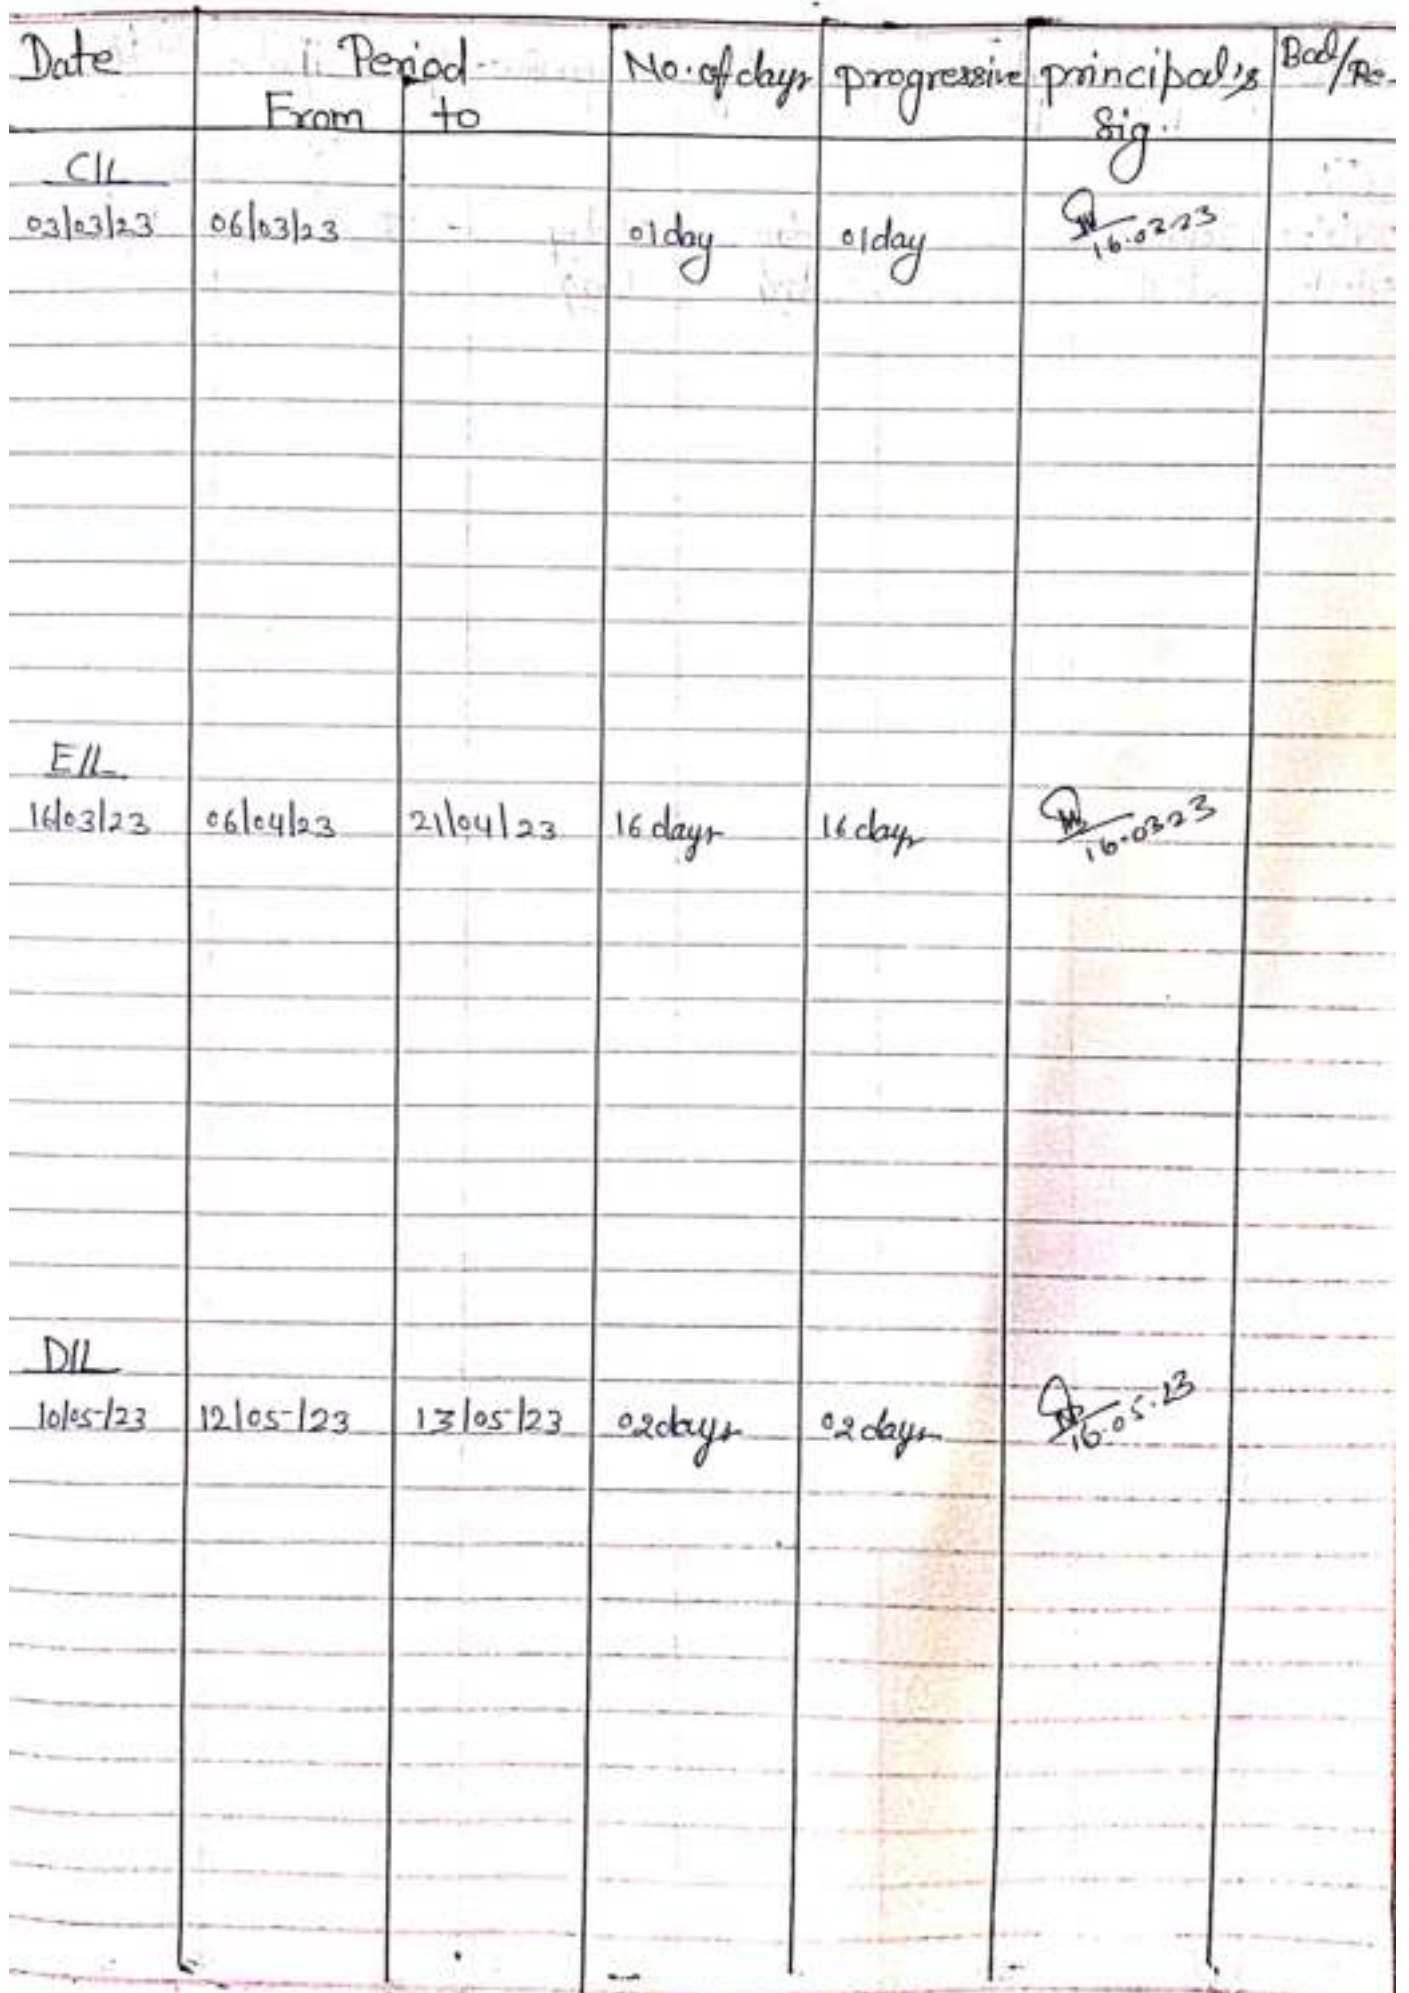 Date Period No. of days progressive principal's Bal/Re-
From to Sig.
C/L
03/03/23 06/03/23 - 01 day 01 day 16.03.23
E/L
16/03/23 06/04/23 21/04/23 16 days 16 days 16.03.23
D/L
10/05/23 12/05/23 13/05/23 02 days 02 days 16.05.23